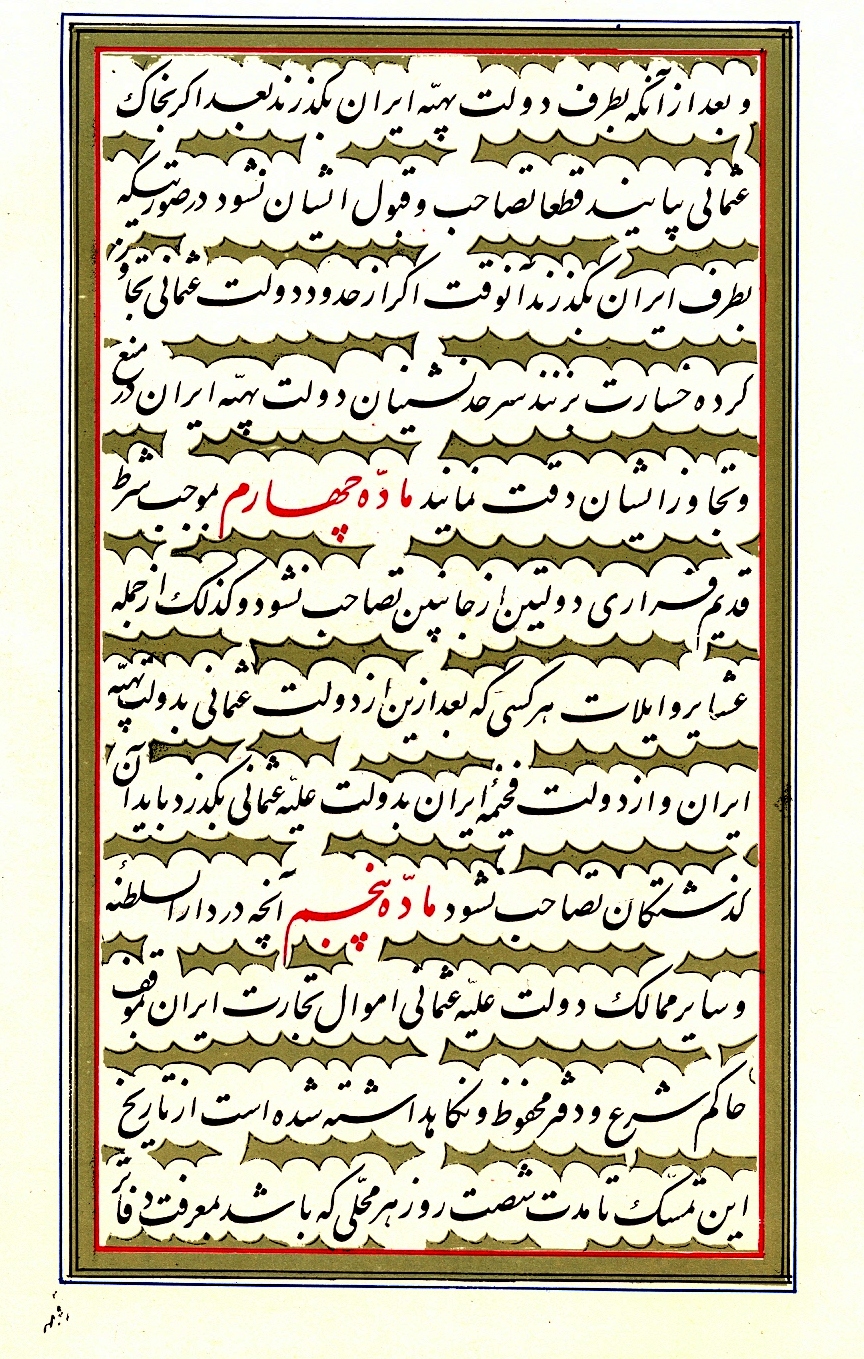 و بعد از آنکه بطرف دولت بهیّه ایران بگذرند بعد اگر بخاک
عثمانی بیایند قطعا تصاحب و قبول ایشان نشود در صورتیکه
بطرف ایران بگذرند آنوقت اگر از حدود دولت عثمانی تجاوز
کرده خسارت بزنند سرحدنشینان دولت بهیّه ایران در منع
و تجاوز ایشان دقت نمایند مادّه چهارم بموجب شرط
قدیم فراری دولتین از جانبین تصاحب نشود و کذلک از جمله
عشایر و ایلات هر کسی که بعد ازین از دولت عثمانی بدولت بهیّه
ایران و از دولت فخیمهٔ ایران بدولت علیّه عثمانی بگذرد باید آن
گذشتگان تصاحب نشود مادّه پنجم آنچه در دار السلطنهٔ
و سایر ممالک دولت علیّه عثمانی اموال تجارت ایران بموقف
حاکم شرع و دفتر محفوظ و نگاهداشته شده است از تاریخ
این تمسّک تا مدت شصت روز هر محلّی که باشد بمعرفت دفاتر